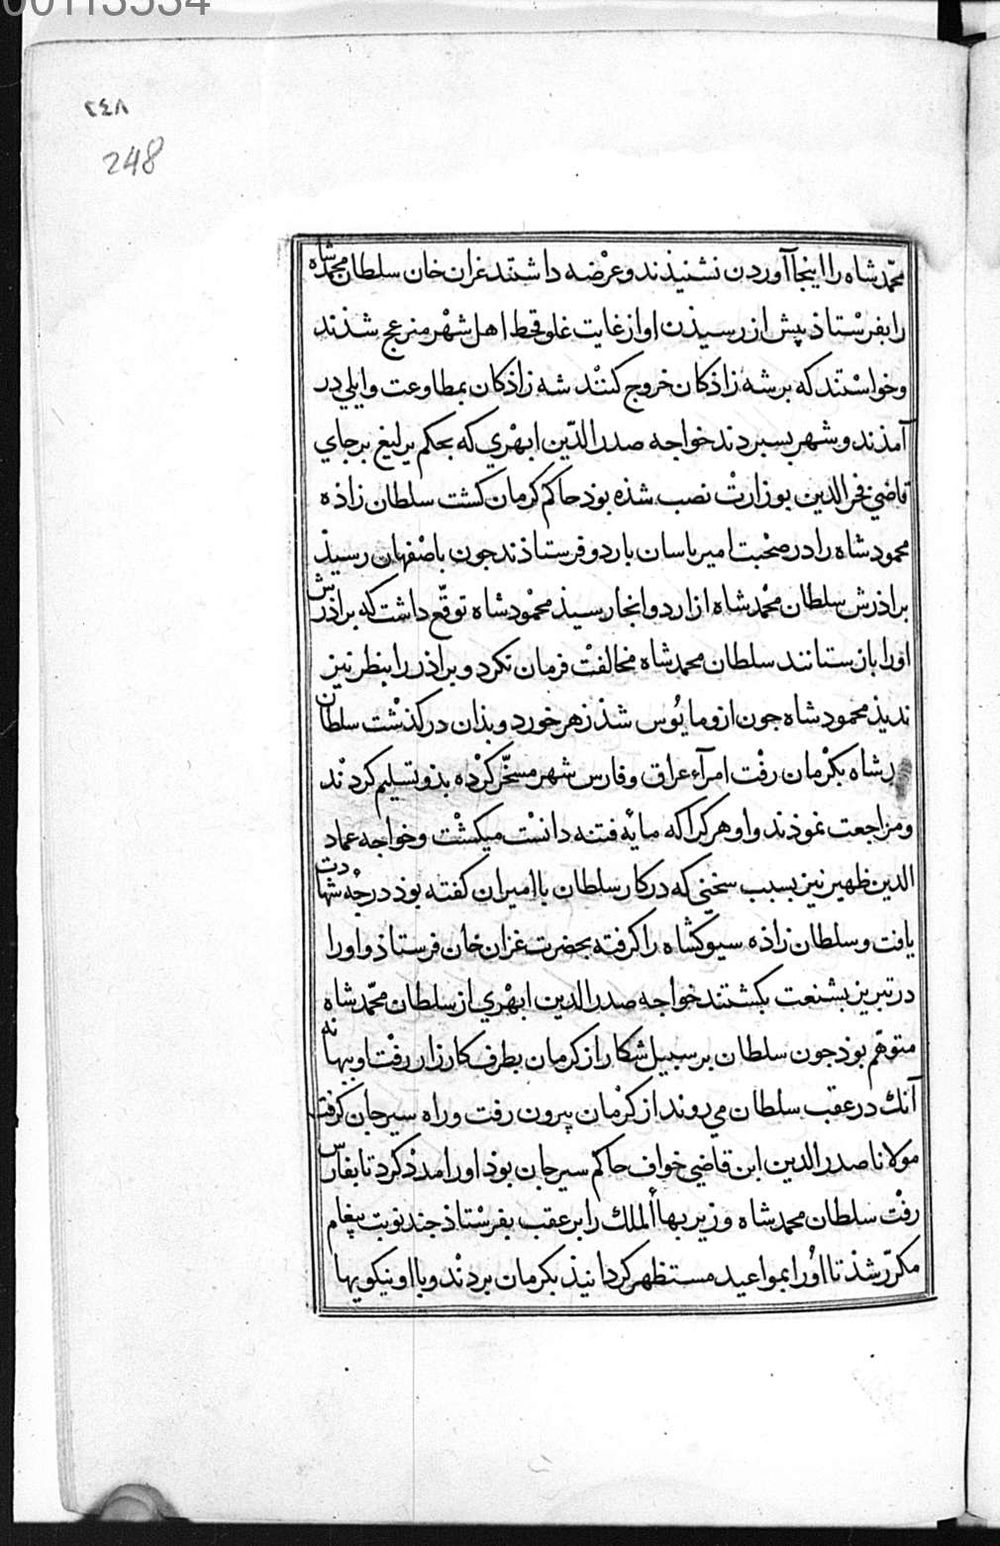 00113534
٢٤٨
248
محمّد شاه را اینجا آوردن نشنیذند و عرضه داشتند غزان خان سلطان محمد شاه
را بفرستاذ پیش از رسیذن او از غایت غلو قحط اهل شهر منزعج شذند
و خواستند که بر شه زاذکان خروج کنند شه زاذکان بمطاوعت و ایلی در
آمذند و شهر بسبردند خواجه صدر الدّین ابهری که بحکم یرلیغ بر جای
قاضی فخر الدین بوزارت نصب شذه بوذ حاکم کرمان کشت سلطان زاذه
محمود شاه را در صحبت امیر یاسان باردو فرستاذند جون باصفهان رسیذ
براذرش سلطان محمد شاه از اردو انجا رسیذ محمود شاه توقّع داشت که براذرش
او را باز ستانند سلطان محمد شاه مخالفت فرمان نکرد و براذر را بنظر نیز
ندیذ محمود شاه جون ازو مایُوس شذ زهر خورد و بذان در کذشت سلطان
شاه بکرمان رفت امرآء عراق و فارس شهر مسخّر کرده بذو تسلیم کردند
و مراجعت نموذند و او هر کرا که مایهٔ فتنه دانست میکشت و خواجه عماد
الدین ظهیر نیز بسبب سخنی که در کار سلطان با امیران کفته بوذ درجهٔ شهادت
یافت و سلطان زاذه سیوکشاه را کرفته بحضرت غزان خان فرستاذ و او را
در تبریز بشنعت بکشتند خواجه صدر الدین ابهری از سلطان محمّد شاه
متوهّم بوذ جون سلطان بر سبیل شکار از کرمان بطرف کارزار رفت او ببهانه
آنک در عقب سلطان می روند از کرمان بیرون رفت و راه سیرجان کرفت
مولانا صدر الدین ابن قاضی خواف حاکم سیرجان بوذ او را مدد کرد تا بفارس
رفت سلطان محمد شاه وزیر بهاُ الملک را بر عقب بفرستاذ جند نوبت پیغام
مکرّر شذ تا او را بمواعید مستظهر کردانیذ بکرمان بردند و با او نیکویها